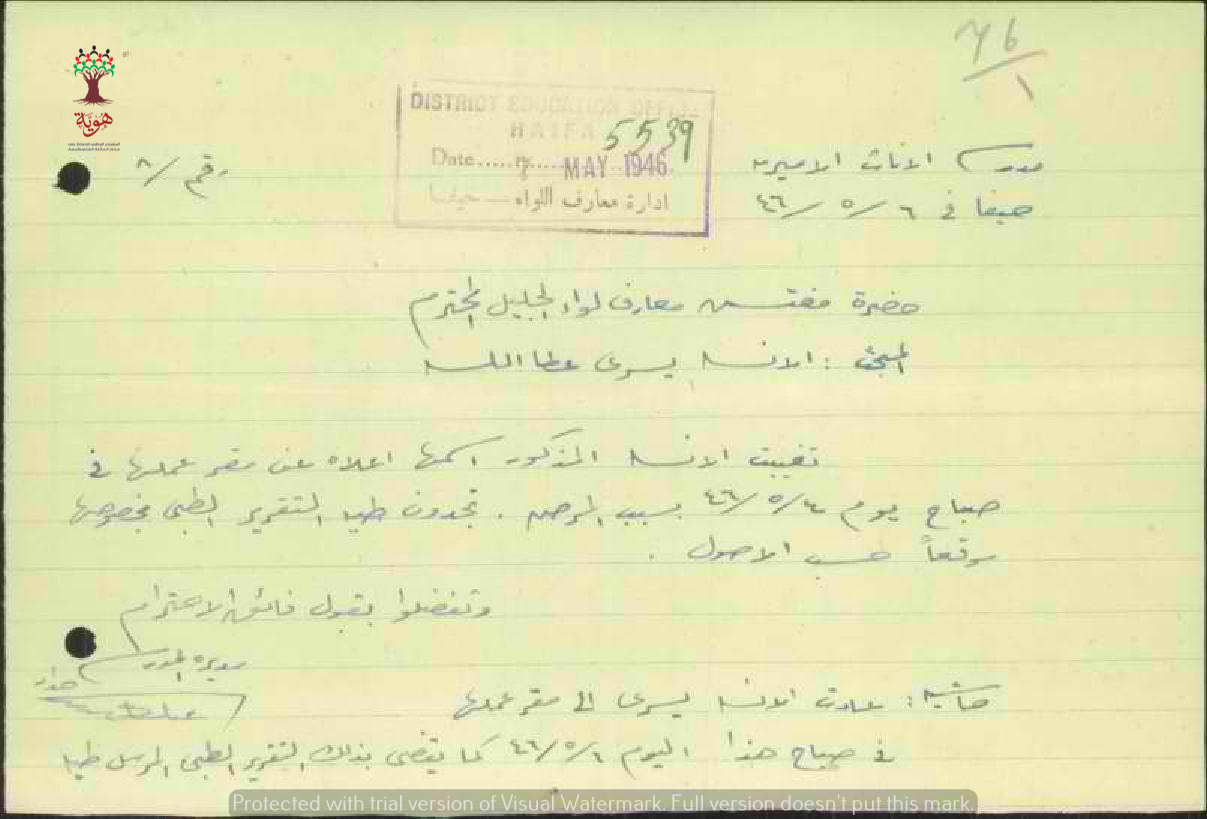 ٧٦/١
DISTRICT EDUCATION OFFICE
HAIFA
5539
Date...... 7 ... MAY 1946
ادارة معارف اللواء — حيفا
مدرسة الاناث الاميرية
رقم /٨
في ٦/٥/٤٦
حضرة مفتش معارف لواء الجليل المحترم
المبحث : الانسة يسرى عطا الله
تغيبت الانسة المذكور اسمها اعلاه عن مقر عملها في
صباح يوم ٤/٥/٤٦ بسبب المرض . تجدون طيه التقرير الطبي بخصوصها
موقعاً حسب الاصول .
وتفضلوا بقبول فائق الاحترام
مديرة المدرسة
حاشية : عادت الانسة يسرى الى مقر عملها
في صباح هذا اليوم ٦/٥/٤٦ كما يقضي بذلك التقرير الطبي المرسل طيه
هوية
Protected with trial version of Visual Watermark. Full version doesn't put this mark.